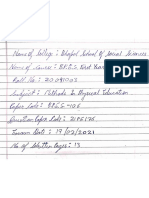 Name of College : Bhopal School of Social Sciences
Name of Course : B.P.E.S First Year
Roll No : 20091003
Subject : Methods In Physical Education
Paper Code : BPES-106
Question Paper Code : 21PE176
Exam Date : 17/02/2021
No of Written Pages : 13